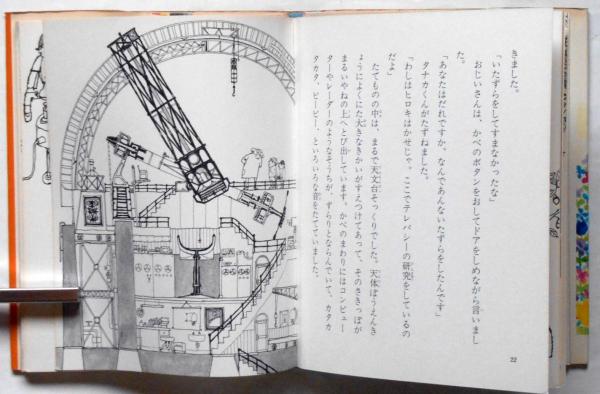 きました。
「いたずらをしてすまなかったな」
おじいさんは、かべのボタンをおしてドアをしめながら言いまし
た。
「あなたはだれですか。なんであんないたずらをしたんです」
タナカくんがたずねました。
「わしはヒロキはかせじゃ。ここでテレパシーの研究をしているの
だよ」
たてものの中は、まるで天文台そっくりでした。天体ぼうえんき
ょうによくにた大きなきかいがすえつけてあって、そのさきっぽが
まるいやねの上へとび出しています。かべのまわりにはコンピュー
ターやレーダーのようなそうちが、ずらりとならんでいて、カタカ
タカタ、ピーピー、といろいろな音をたてていました。
22